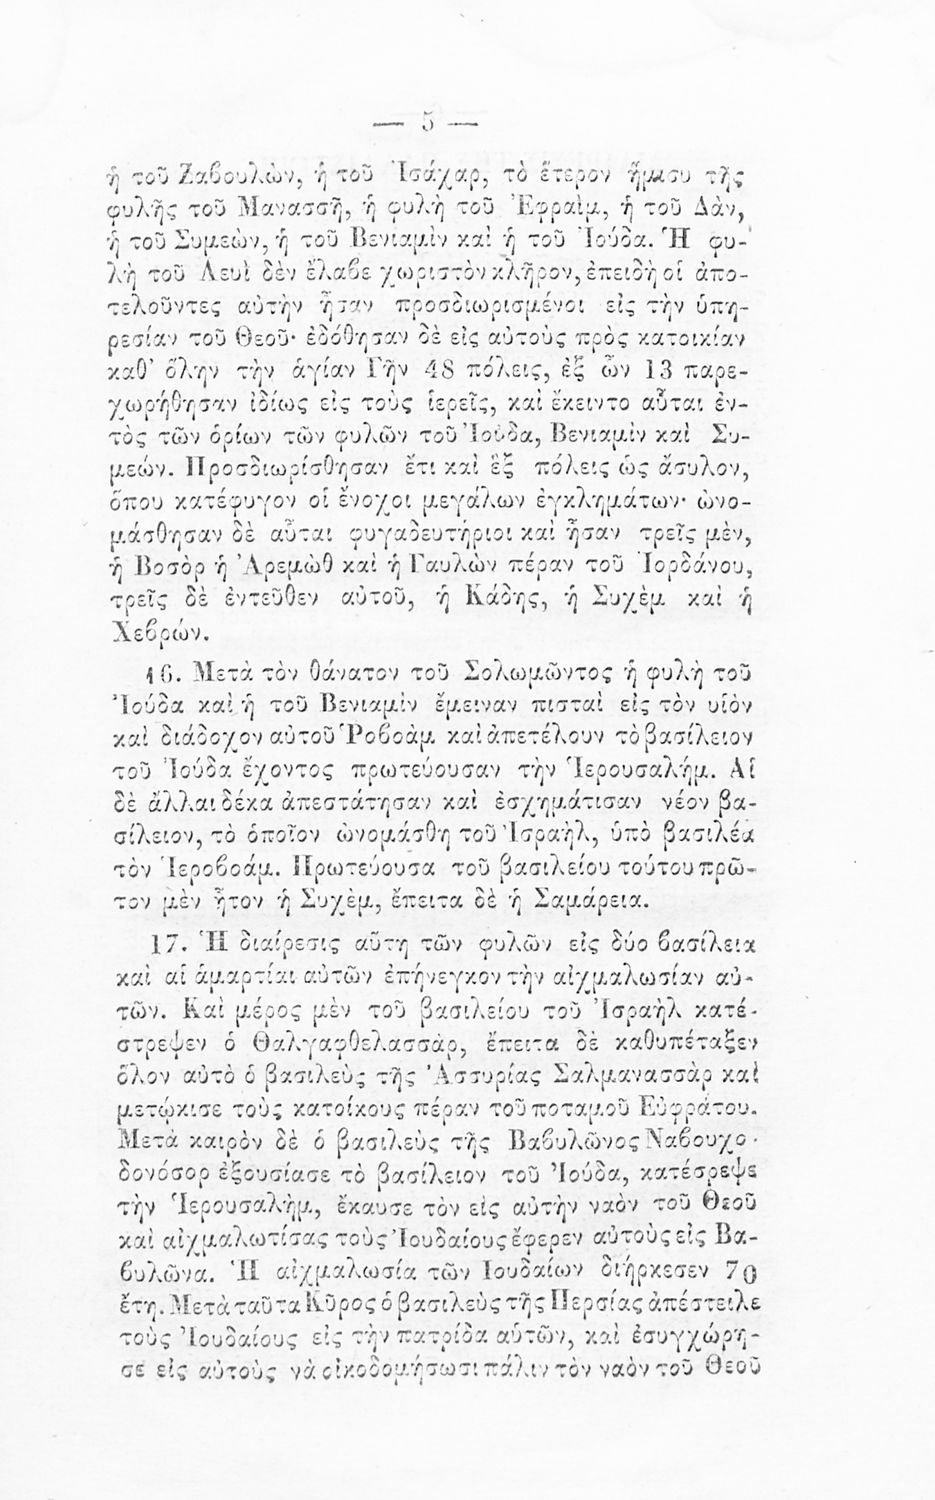 — 5 —
ἡ τοῦ Ζαβουλὼν, ἡ τοῦ Ἰσάχαρ, τὸ ἕτερον ἥμισυ τῆς
φυλῆς τοῦ Μανασσῆ, ἡ φυλὴ τοῦ Ἐφραὶμ, ἡ τοῦ Δὰν,
ἡ τοῦ Συμεὼν, ἡ τοῦ Βενιαμὶν καὶ ἡ τοῦ Ἰούδα. Ἡ φυ-
λὴ τοῦ Λευὶ δὲν ἔλαβε χωριστὸν κλῆρον, ἐπειδὴ οἱ ἀπο-
τελοῦντες αὐτὴν ἦσαν προσδιωρισμένοι εἰς τὴν ὑπη-
ρεσίαν τοῦ Θεοῦ· ἐδόθησαν δὲ εἰς αὐτοὺς πρὸς κατοικίαν
καθ' ὅλην τὴν ἁγίαν Γῆν 48 πόλεις, ἐξ ὧν 13 παρε-
χωρήθησαν ἰδίως εἰς τοὺς ἱερεῖς, καὶ ἔκειντο αὗται ἐν-
τὸς τῶν ὁρίων τῶν φυλῶν τοῦ Ἰούδα, Βενιαμὶν καὶ Συ-
μεών. Προσδιωρίσθησαν ἔτι καὶ ἓξ πόλεις ὡς ἄσυλον,
ὅπου κατέφυγον οἱ ἔνοχοι μεγάλων ἐγκλημάτων· ὠνο-
μάσθησαν δὲ αὗται φυγαδευτήριοι καὶ ἦσαν τρεῖς μὲν,
ἡ Βοσὸρ ἡ Ἀρεμὼθ καὶ ἡ Γαυλὼν πέραν τοῦ Ἰορδάνου,
τρεῖς δὲ ἐντεῦθεν αὐτοῦ, ἡ Κάδης, ἡ Συχὲμ καὶ ἡ
Χεβρών.
16. Μετὰ τὸν θάνατον τοῦ Σολωμῶντος ἡ φυλὴ τοῦ
Ἰούδα καὶ ἡ τοῦ Βενιαμὶν ἔμειναν πισταὶ εἰς τὸν υἱὸν
καὶ διάδοχον αὐτοῦ Ῥοβοὰμ καὶ ἀπετέλουν τὸ βασίλειον
τοῦ Ἰούδα ἔχοντος πρωτεύουσαν τὴν Ἱερουσαλήμ. Αἱ
δὲ ἄλλαι δέκα ἀπεστάτησαν καὶ ἐσχημάτισαν νέον βα-
σίλειον, τὸ ὁποῖον ὠνομάσθη τοῦ Ἰσραὴλ, ὑπὸ βασιλέα
τὸν Ἱεροβοάμ. Πρωτεύουσα τοῦ βασιλείου τούτου πρῶ-
τον μὲν ἦτον ἡ Συχὲμ, ἔπειτα δὲ ἡ Σαμάρεια.
17. Ἡ διαίρεσις αὕτη τῶν φυλῶν εἰς δύο βασίλεια
καὶ αἱ ἁμαρτίαι αὐτῶν ἐπήνεγκον τὴν αἰχμαλωσίαν αὐ-
τῶν. Καὶ μέρος μὲν τοῦ βασιλείου τοῦ Ἰσραὴλ κατέ-
στρεψεν ὁ Θαλγαφθελασσὰρ, ἔπειτα δὲ καθυπέταξεν
ὅλον αὐτὸ ὁ βασιλεὺς τῆς Ἀσσυρίας Σαλμανασσὰρ καὶ
μετῴκισε τοὺς κατοίκους πέραν τοῦ ποταμοῦ Εὐφράτου.
Μετὰ καιρὸν δὲ ὁ βασιλεὺς τῆς Βαβυλῶνος Ναβουχο-
δονόσορ ἐξουσίασε τὸ βασίλειον τοῦ Ἰούδα, κατέσρεψε
τὴν Ἱερουσαλὴμ, ἔκαυσε τὸν εἰς αὐτὴν ναὸν τοῦ Θεοῦ
καὶ αἰχμαλωτίσας τοὺς Ἰουδαίους ἔφερεν αὐτοὺς εἰς Βα-
βυλῶνα. Ἡ αἰχμαλωσία τῶν Ἰουδαίων διήρκεσεν 70
ἔτη. Μετὰ ταῦτα Κῦρος ὁ βασιλεὺς τῆς Περσίας ἀπέστειλε
τοὺς Ἰουδαίους εἰς τὴν πατρίδα αὑτῶν, καὶ ἐσυγχώρη-
σε εἰς αὐτοὺς νὰ οἰκοδομήσωσι πάλιν τὸν ναὸν τοῦ Θεοῦ